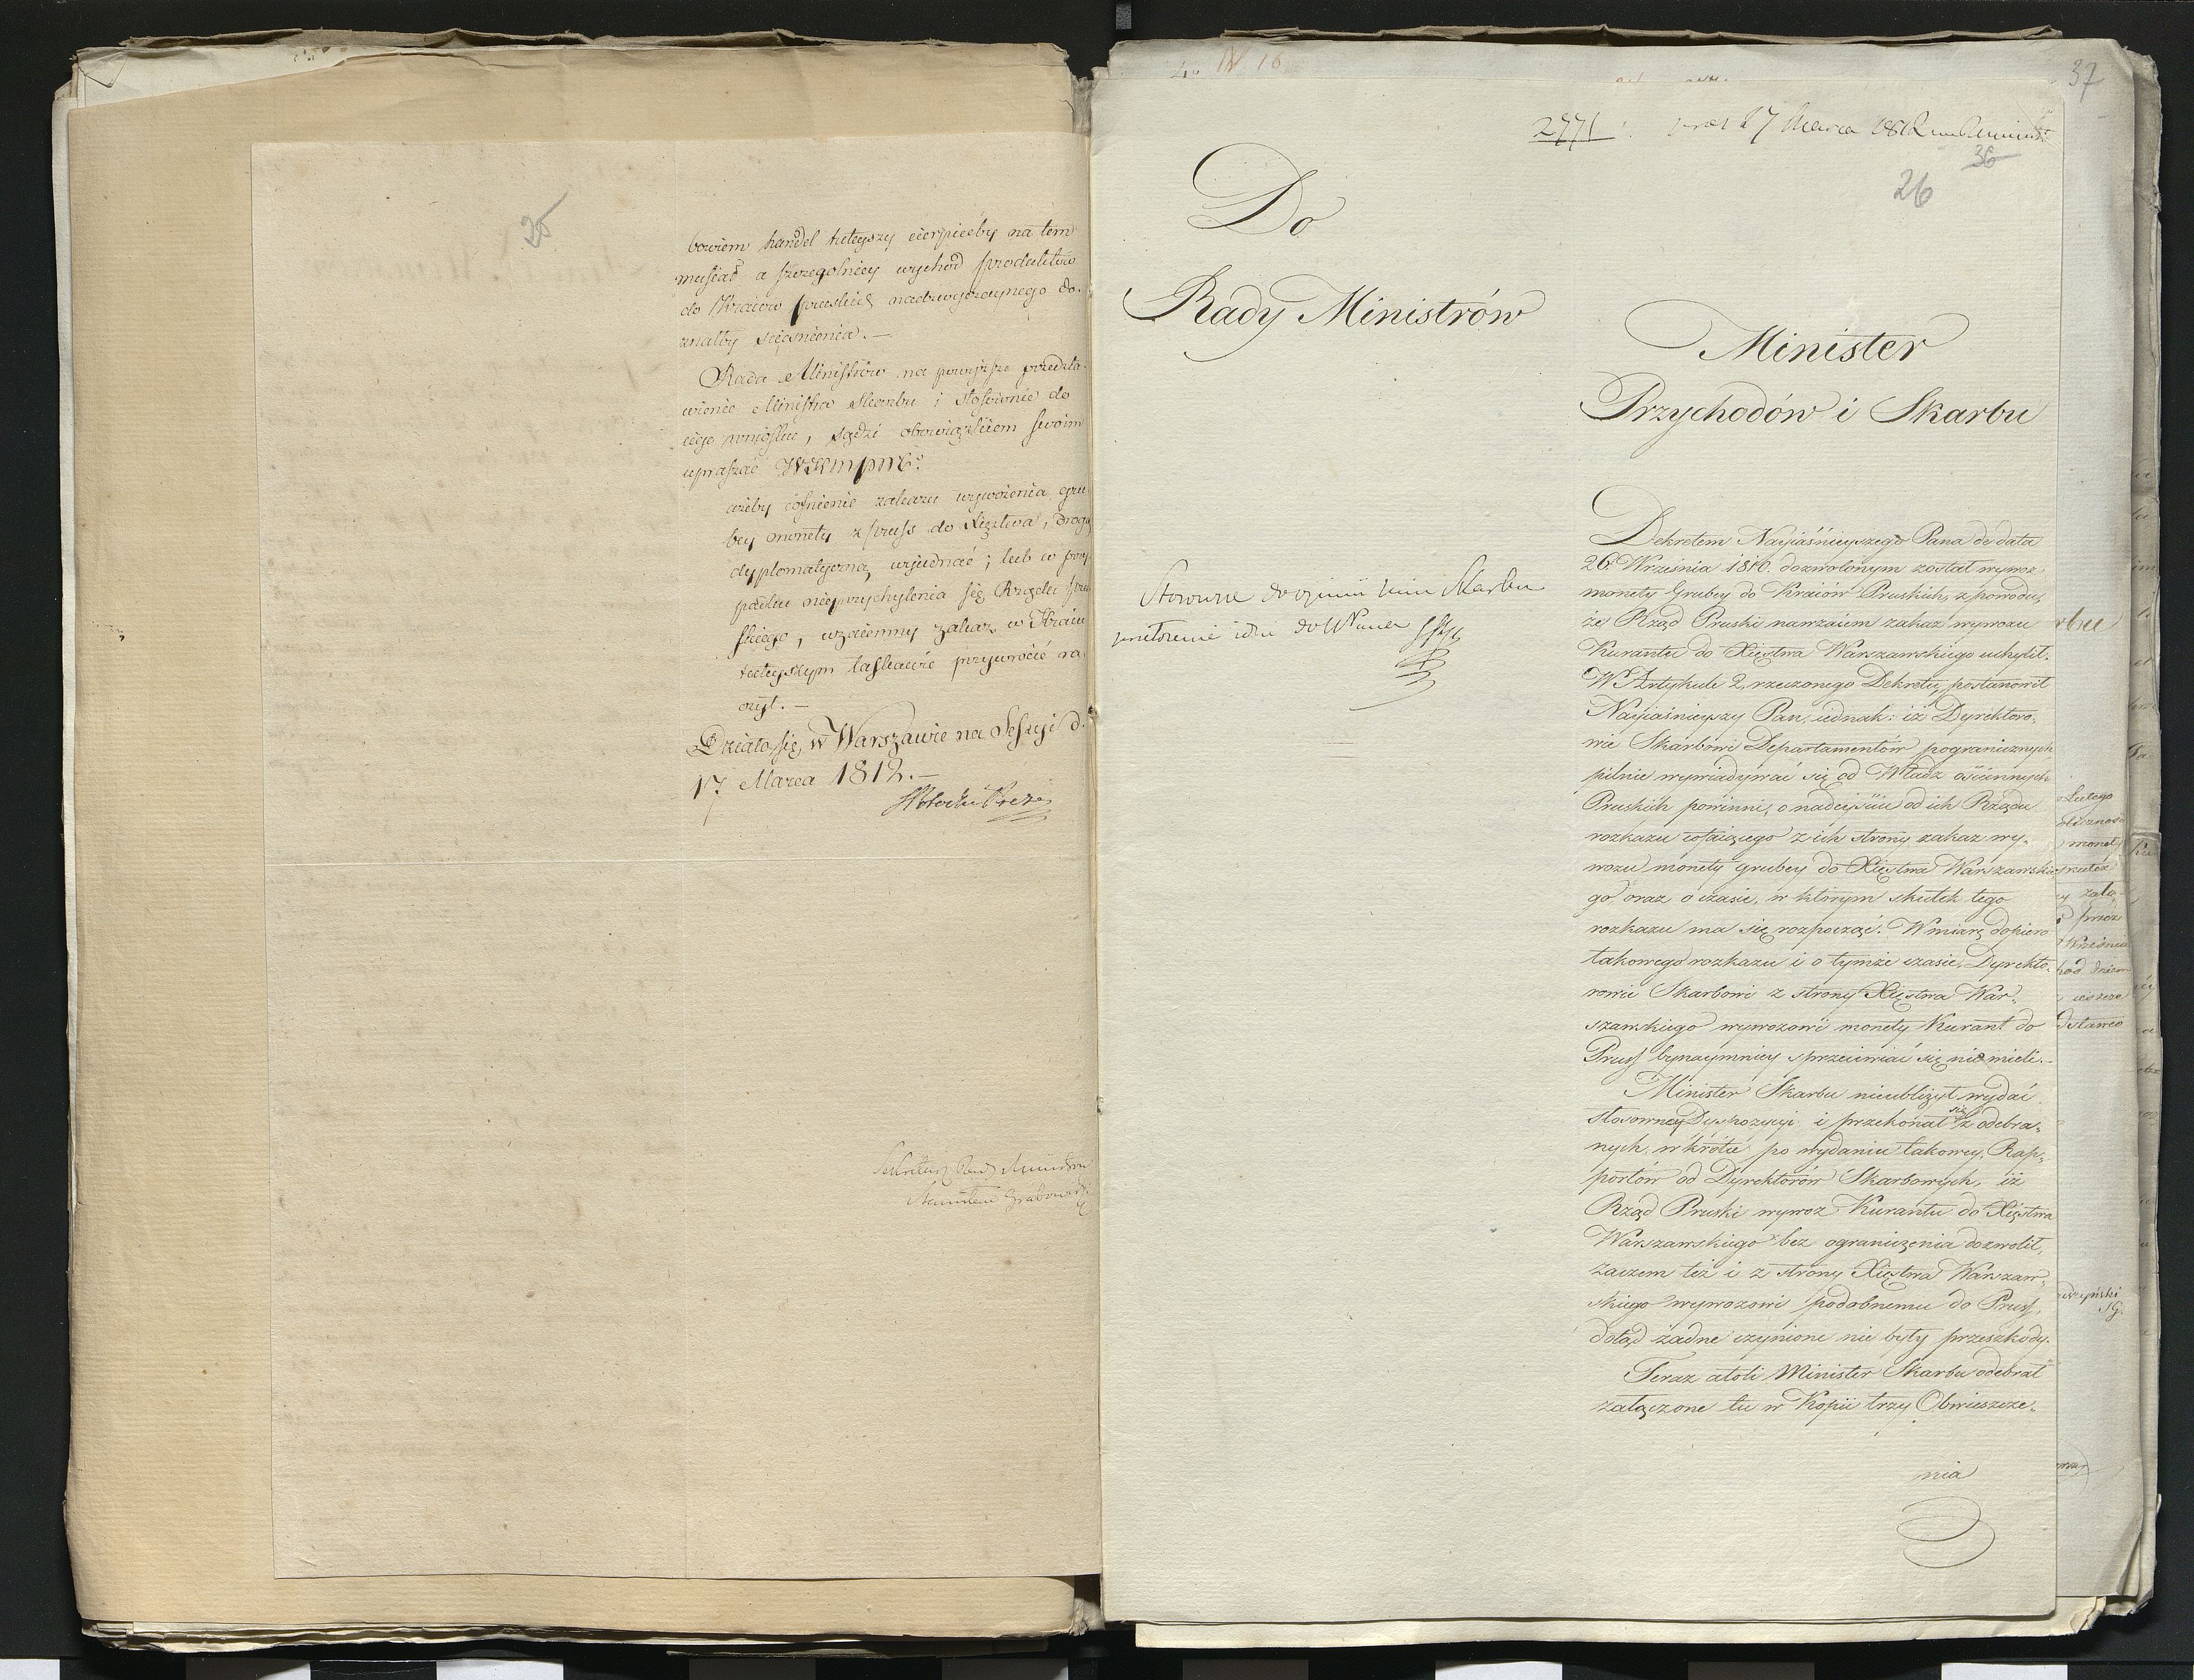 25
bowiem handel tuteyszy cierpiećby na tém
musiał a szczegolniey wychod produktów
do Kraiów pruskich nadzwyczaynego do-
znałby ścieśnienia. —
Rada Ministrów na powyższe przedsta-
wienie Ministra Skarbu i stosownie do
iego wniosku, sądzi obowiązkiem swoim
upraszać WKMPMć:
ażeby cofnienie zakazu wywożenia gru-
bey monety z Pruss do Xięztwa, drogą
dyplomatyczną wyiednać; lub w przy-
padku nieprzychylenia się Rządu pru-
skiego, wzaiemny zakaz w Kraiu
tuteyszym łaskawie przywrócić ra-
czył. —
Działo się w Warszawie na Sessyi d.
17 Marca 1812. —
Sekretarz Rady Ministrów
Stanisław Grabowski
37
N 16
2771 17 Marca 1812
36
26
Do
Rady Ministrów
Minister
Przychodów i Skarbu
Stosownie do opinii Min Skarbu
Dekretem Nayiaśnieyszego Pana de data
26. Września 1810. dozwolonym został wywoz
monety Grubey do Kraiów Pruskich, z powodu,
że Rząd Pruski nawzaiem zakaz wywozu
Kurantu do Xięstwa Warszawskiego uchylił.
W Artykule 2. rzeczonego Dekretu, postanowił
Nayiaśnieyszy Pan iednak: iż Dyrektoro-
wie Skarbowi Departamentów pogranicznych
pilnie wywiadywać się od Władz ościennych
Pruskich powinni, o nadeyściu od ich Rządu
rozkazu cofaiącego z ich strony zakaz wy-
wozu monety grubey do Xięstwa Warszawskie-
go oraz o czasie, w którym skutek tego
rozkazu ma się rozpocząć. W miarę dopiero
takowego rozkazu i o tymże czasie, Dyrekto-
rowie Skarbowi z strony Xięstwa War-
szawskiego wywozowi monety Kurant do
Pruss bynaymniey sprzeciwiać się nie mieli. —
Minister Skarbu nieubliżył wydać
stosowney Dyspozycyi i przekonał się z odebra-
nych, wkrótce po wydaniu takowey, Rap-
portów od Dyrektorów Skarbowych, iż
Rząd Pruski wywoz Kurantu do Xięstwa
Warszawskiego bez ograniczenia dozwolił,
zaczem też i z strony Xięstwa Warszaw-
skiego wywozowi podobnemu do Pruss,
dotąd żadne czynione nie były przeszkody.
Teraz atoli Minister Skarbu odebrał
załączone tu w Kopii trzy Obwieszcze-
nia